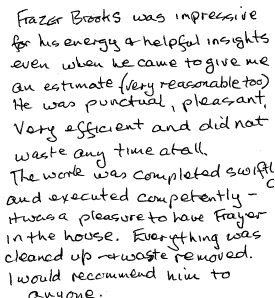 Frazer Brooks was impressive
for his energy & helpful insights
even when he came to give me
an estimate (very reasonable too)
He was punctual, pleasant,
Very efficient and did not
waste any time atall.
The work was completed swiftly
and executed competently –
it was a pleasure to have Frazer
in the house. Everything was
cleaned up & waste removed.
I would recommend him to
anyone.